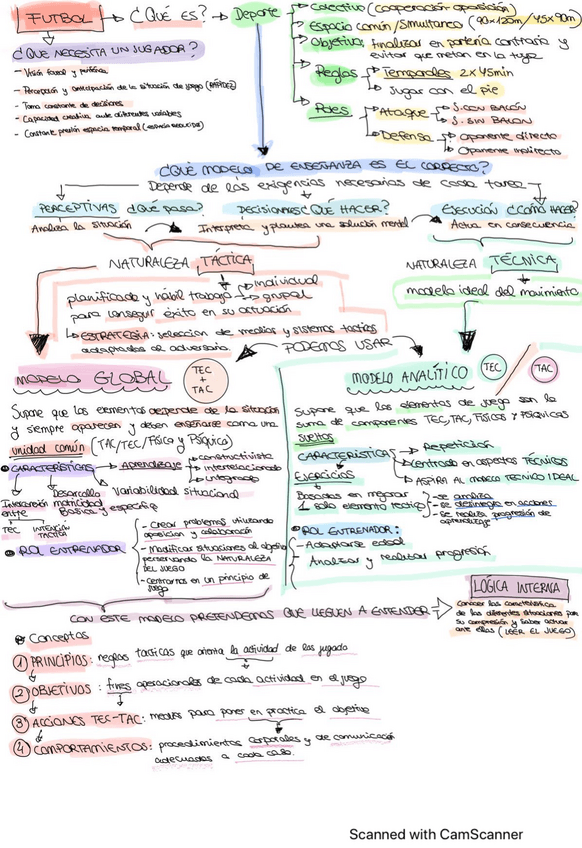 FUTBOL → ¿QUÉ ES? → Deporte
Colectivo (cooperación oposición)
Espacio común/simultaneo (90x120m/45x90m)
Objetivo: finalizar en portería contraria y
evitar que metan en la tuya
Reglas
Temporales 2x45min
Jugar con el pie
Roles
Ataque
J. CON BALÓN
J. SIN BALÓN
Defensa
Oponente directo
Oponente indirecto
¿QUÉ NECESITA UN JUGADOR?
- Visión focal y periférica
- Percepción y anticipación de la situación de juego (RAPIDEZ)
- Toma constante de decisiones
- Capacidad creativa ante diferentes variables
- Constante presión espacio temporal
¿QUÉ MODELO DE ENSEÑANZA ES EL CORRECTO?
Depende de las exigencias necesarias de cada tarea
PERCEPTIVAS ¿QUÉ PASA?
Analiza la situación
DECISIONALES ¿QUÉ HACER?
Interpreta y plantea una solución mental
EJECUCIÓN ¿CÓMO HACER?
Actua en consecuencia
NATURALEZA TÁCTICA
individual
grupal
planificada y hábil trabajo
para conseguir éxito en su actuación
ESTRATEGIA: selección de medios y sistemas tacticos
adaptados al adversario
NATURALEZA TÉCNICA
modelo ideal del movimiento
PODEMOS USAR
MODELO GLOBAL
TEC
+
TAC
Supone que los elementos dependen de la situación
y siempre aparecen y deben enseñarse como una
unidad común (TAC/TEC/Física y Psíquica)
CARACTERÍSTICAS
Aprendizaje
constructivista
interrelacionado
integrado
Variabilidad situacional
Desarrollo
motricidad
Básica y específica
Interconexión
entre
TEC
INTENCIÓN
TÁCTICA
ROL ENTRENADOR
- Crear problemas utilizando
oposición y colaboración
- Modificar situaciones al objetivo
preservando la NATURALEZA
DEL JUEGO
- Centrarnos en un principio de
juego
MODELO ANALÍTICO
TEC
TAC
Supone que los elementos de juego son la
suma de componentes TEC, TAC, FÍSICOS Y PSIQUICAS
sueltos
CARACTERÍSTICAS
Repetición
Centrado en aspectos TÉCNICOS
ASPIRA AL MODELO TECNICO IDEAL
EJERCICIOS
Basados en mejorar
1 solo elemento técnico
- se analiza
- se desintegra en acciones
- se realiza progresión de
aprendizaje
ROL ENTRENADOR:
- Adaptarse edad
- Analizar y realizar progresión
CON ESTE MODELO PRETENDEMOS QUE LLEGUEN A ENTENDER
LÓGICA INTERNA
Conocer las características
de las diferentes situaciones para
su compresión y saber actuar
ante ellas (LEER EL JUEGO)
Conceptos
1 PRINCIPIOS: reglas tacticas que orienta la actividad de las jugada
2 OBJETIVOS: fines operacionales de cada actividad en el juego
3 ACCIONES TEC-TAC: medios para poner en practica el objetivo
4 COMPORTAMIENTOS: procedimientos corporales y de comunicación
adecuados a cada caso.
Scanned with CamScanner